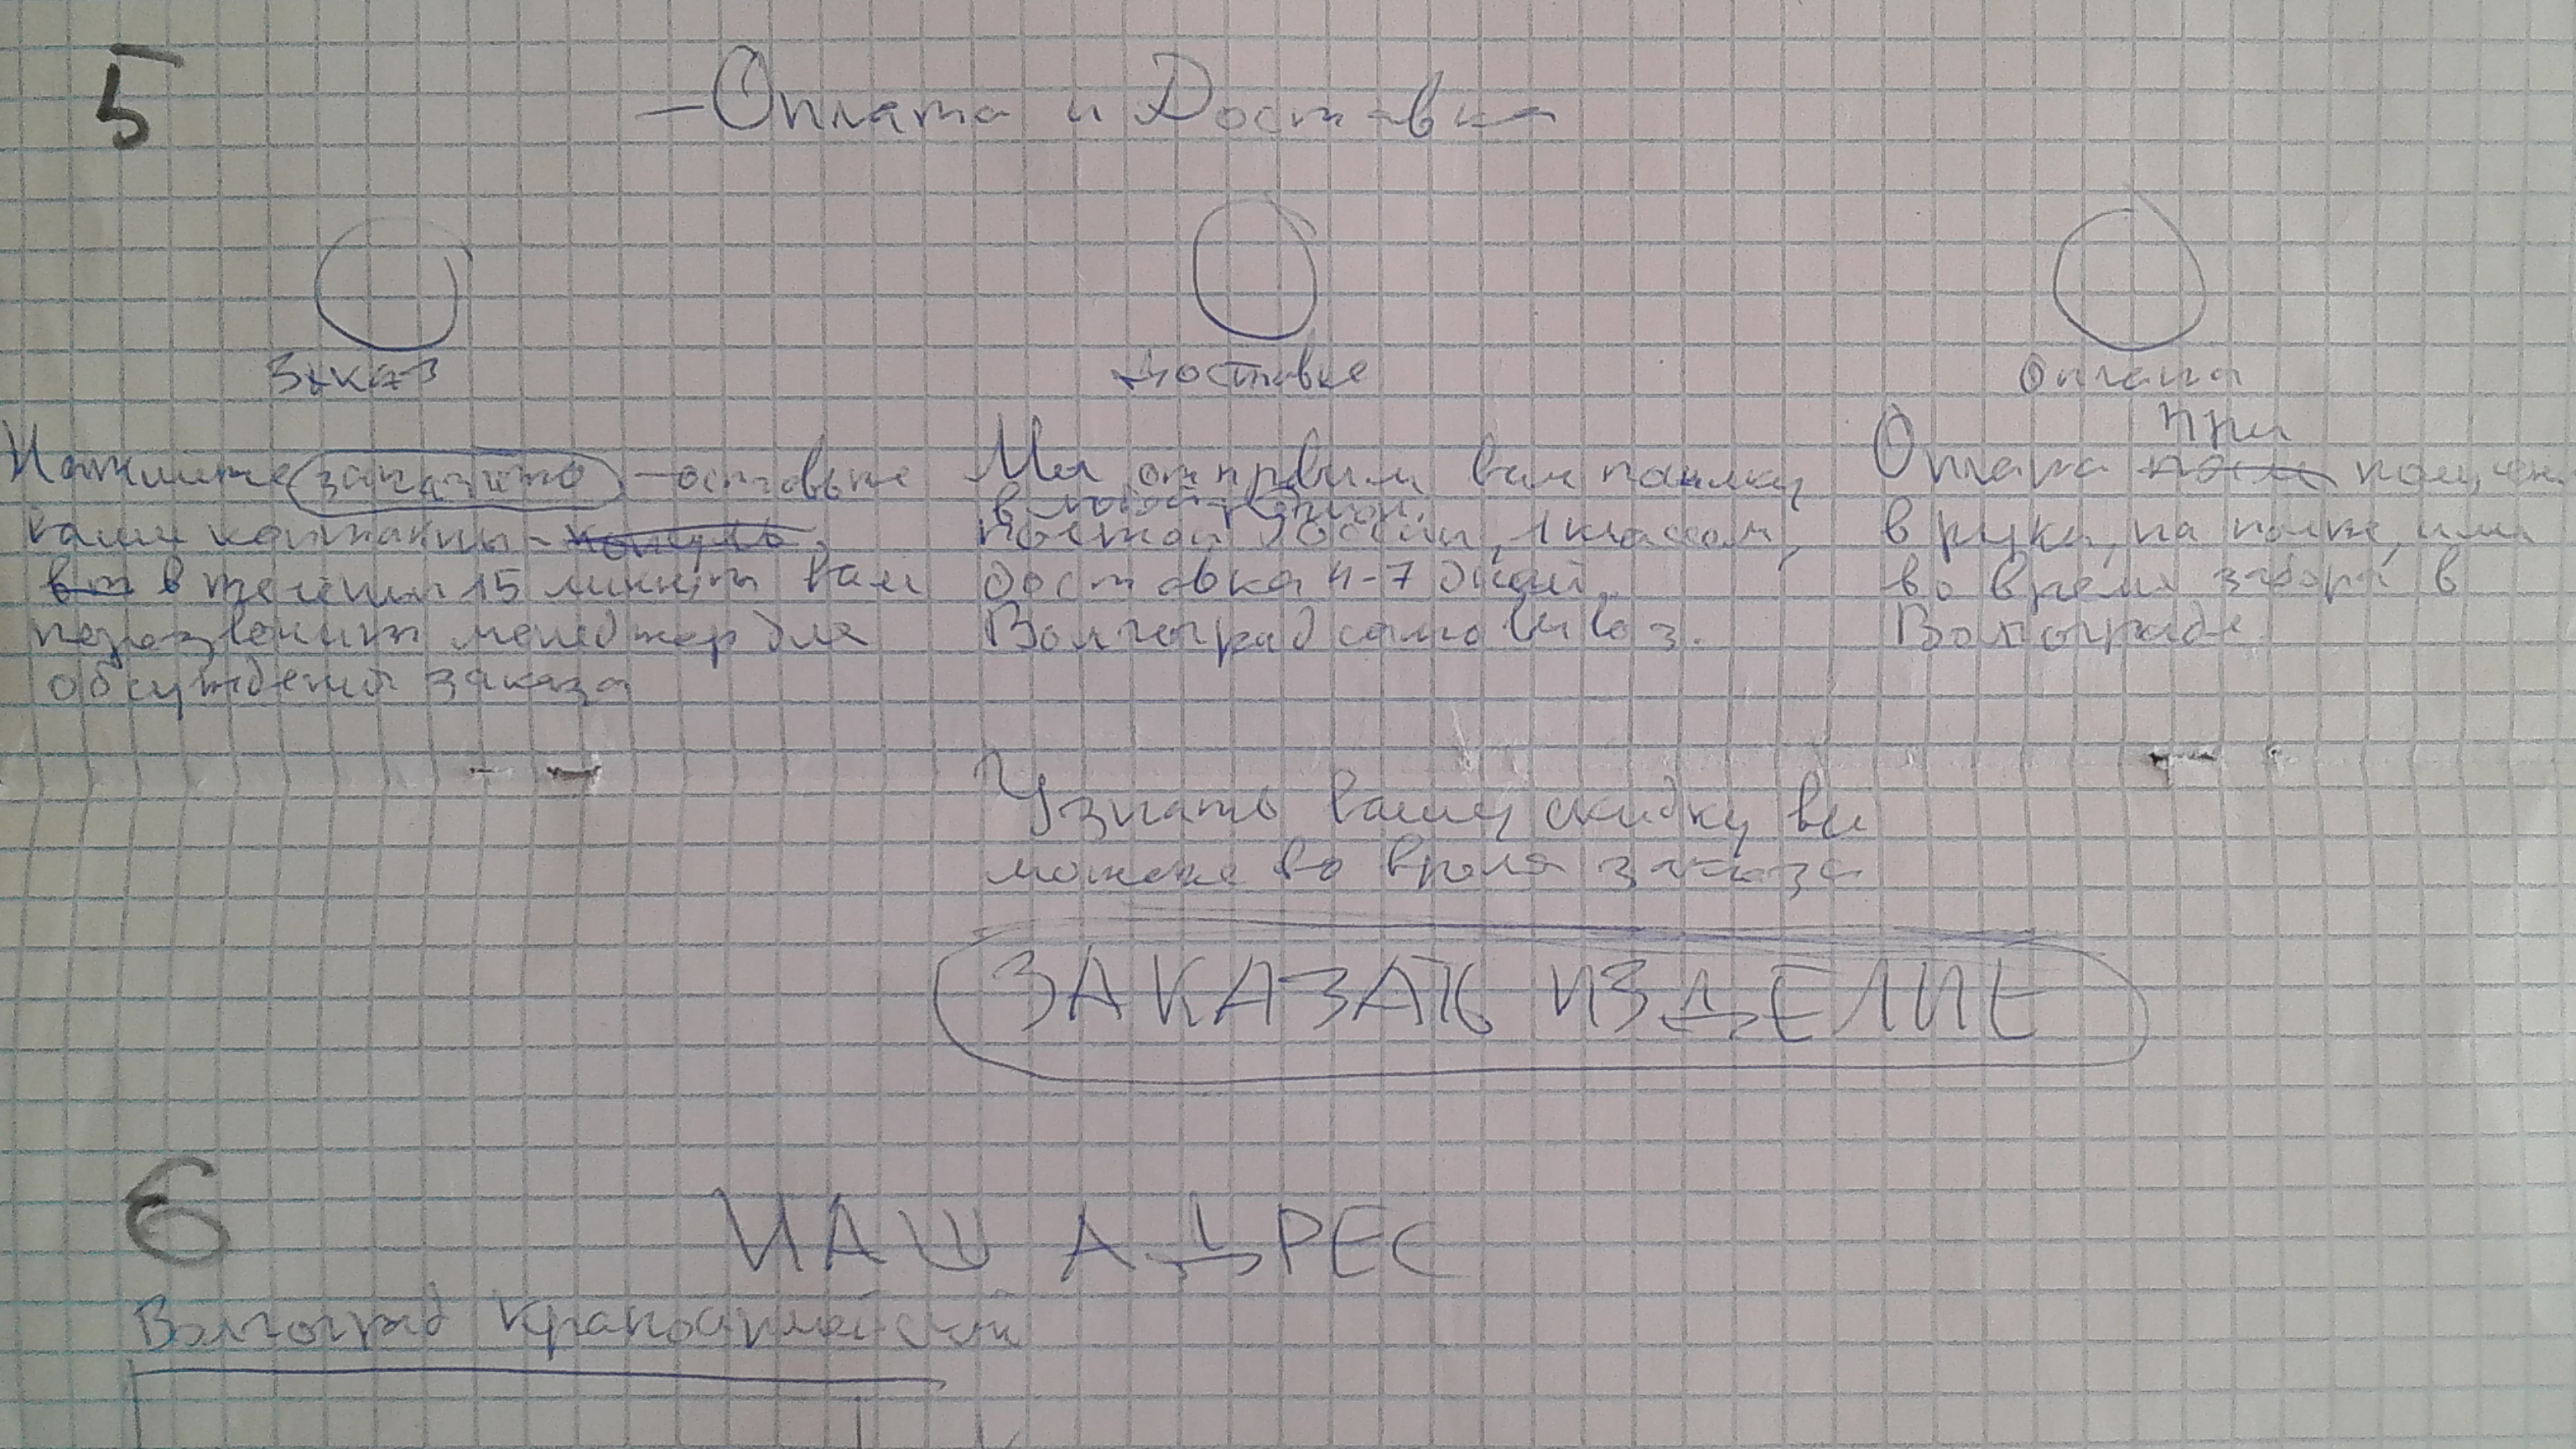 5
- Оплата и Доставка
Заказ
Доставка
Оплата
Нажмите заказать - оставьте
ваши контакты -
в течении 15 минут вам
перезвонит менеджер для
обсуждения заказа
Мы отправим вам посылку
в любой регион.
Почтой России, 1 классом,
доставка 4-7 дней.
Волгоград самовывоз.
при
Оплата после получен.
в руки, на почте, или
во время забора в
Волгограде.
Узнать вашу скидку вы
можете во время заказа
ЗАКАЗАТЬ ИЗДЕЛИЕ
6
НАШ АДРЕС
Волгоград Красноармейский